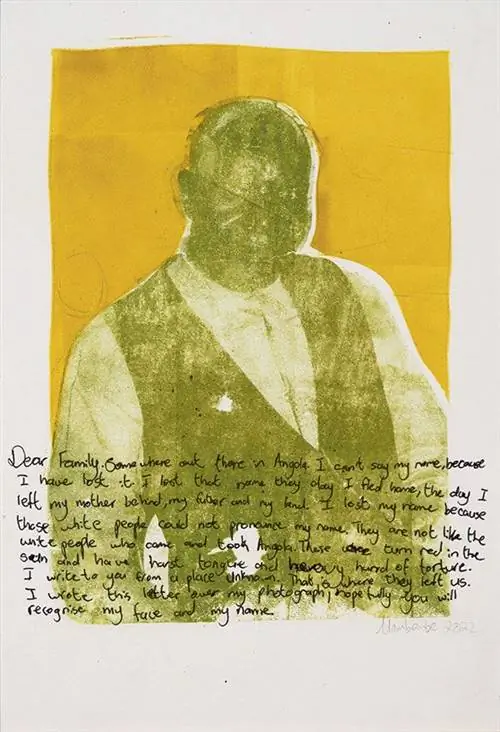 Dear Family, Somewhere out there in Angola. I can't say my name, because
I have lost it. I lost that name they day I fled home, the day I
left my mother behind, my father and my land. I lost my name because
those white people could not pronounce my name. They are not like the
white people who came and took Angola. These turn red in the
sun and have harst tongue and heavy hand of torture.
I write to you from a place unknown. That is where they left us.
I wrote this letter over my photograph, hopefully you will
recognise my face and my name.
2022